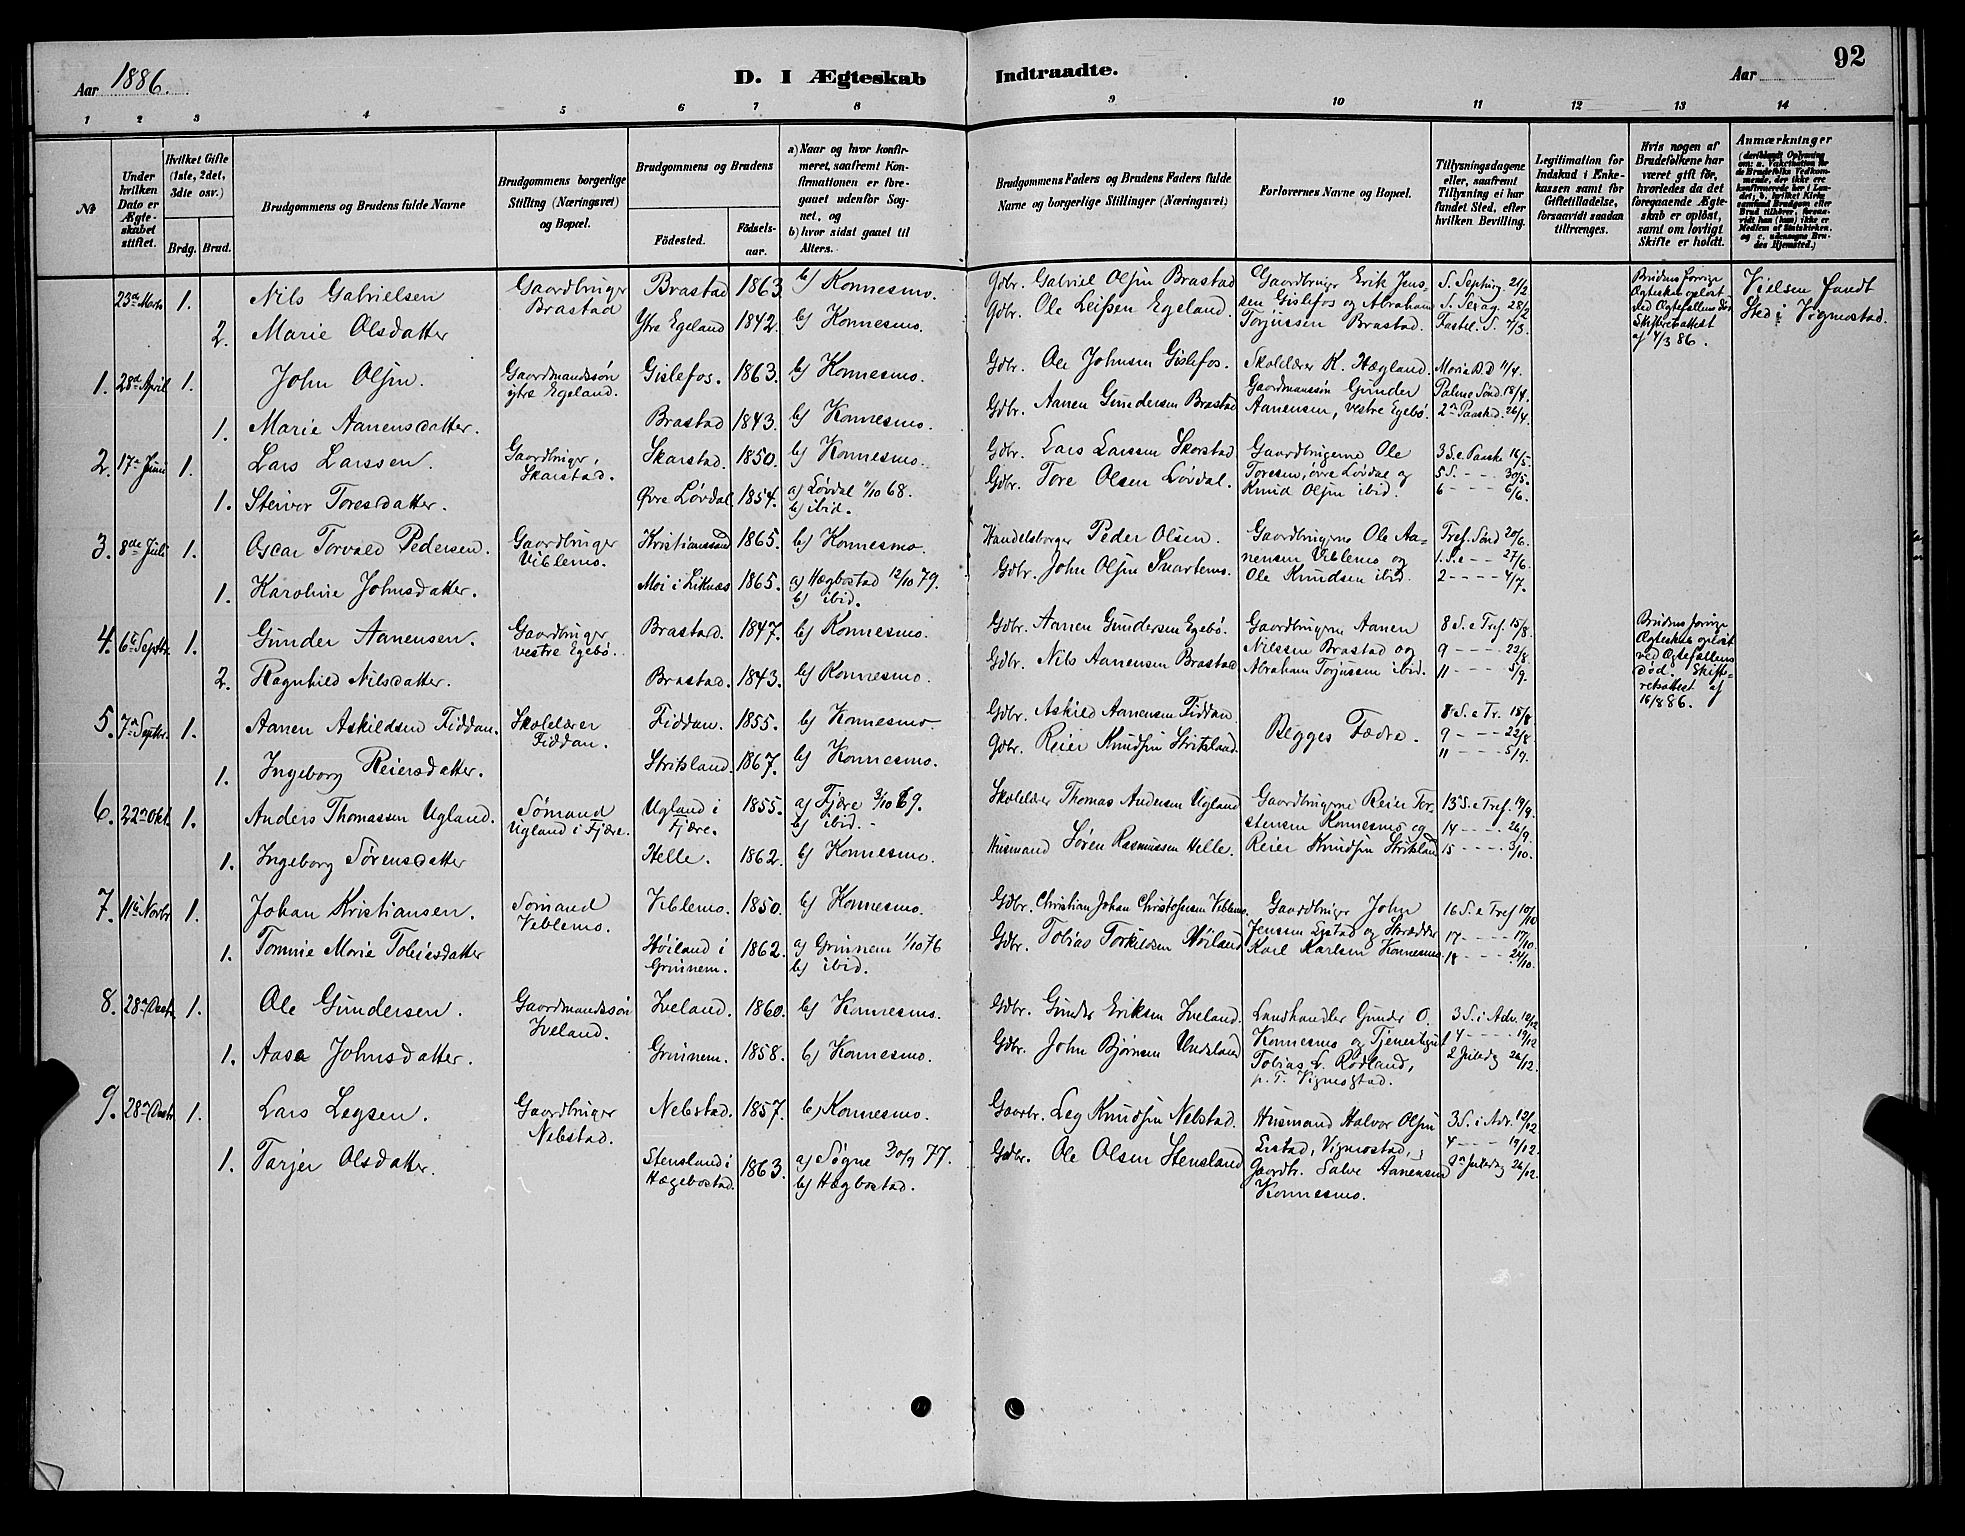 Aar 1886.
D. I Ægteskab Indtraadte.
Aar
92
1 2 3 4 5 6 7 8 9 10 11 12 13 14
No
Under hvilken Dato er Ægteskabet stiftet.
Hvilket Gifte (1ste, 2det, 3die osv.)
Brdg. Brud.
Brudgommens og Brudens fulde Navne
Brudgommens borgerlige Stilling (Næringsvei) og Bopæl.
Brudgommens og Brudens
Födested.
Födselsaar.
a) Naar og hvor konfirmeret, saafremt Konfirmationen er foregaaet udenfor Sognet, og
b) hvor sidst gaaet til Alters.
Brudgommens Faders og Brudens Faders fulde Navne og borgerlige Stillinger (Næringsvei)
Forlovernes Navne og Bopæl.
Tillysningsdagene eller, saafremt Tillysning ei har fundet Sted, efter hvilken Bevilling.
Legitimation for Indskud i Enkekassen samt for Giftetilladelse, forsaavidt saadan tiltrænges.
Hvis nogen af Brudefolkene har været gift før, hvorledes da det foregaaende Ægteskab er opløst, samt om lovligt Skifte er holdt.
Anmærkninger
23de Marts 1. Nils Gabrielsen Gaardbruger Brastad Brastad 1863. b) Konnesmo. Gdbr. Gabriel Olsen Brastad Gaardbruger Erik Jens S. Septuag. 21/2
2. Marie Olsdatter Ytre Egeland 1842. b) Konnesmo. Gdbr. Ole Leifsen Egeland. sen Gislefos og Abraham Torjussen Brastad. S. Sexag. 28/2 Fastel. S. 7/3.
Brudens forrige Ægteskab opløst ved Ægtefællens Død Skifteretsattest af 4/3 86.
Vielsen fandt Sted i Vigmostad.
1. 28de April 1. John Olsen. Gaardmandssøn ytre Egeland. Gislefos. 1863. b) Konnesmo. Gdbr. Ole Johnsen Gislefos. Skolelærer K. Hægland. Marie B. D 11/4.
1. Marie Aanensdatter. Brastad 1843. b) Konnesmo. Gdbr. Aanen Gundersen Brastad Gaardmanssøn Gunder Aanensen, vestre Egebø. Palme Sønd. 18/4. 2n Paaskd. 26/4.
2. 17de Juni 1. Lars Larssen. Gaardbruger, Skarstad. Skarstad. 1850. b) Konnesmo. Gdbr. Lars Larssen Skarstad Gaardbrugerne Ole 3 S. e Paaske 16/5.
1. Steivor Toresdatter. Øvre Løvdal. 1854. a) Løvdal 1/10 68. b) ibid. Gdbr. Tore Olsen Løvdal. Toresen, øvre Løvdal og Knud Olsen ibid. 5 S. - - 30/5. 6 - - - 6/6.
3. 8de Juli 1. Oscar Torvald Pedersen. Gaardbruger Viblemo. Kristianssand 1865. b) Konnesmo. Handelsborger Peder Olsen. Gaardbrugerne Ole Aa- Tref. Sønd 20/6.
1. Karoline Johnsdatter. Moi i Liknæs 1865. a) Hægbostad 12/10 79. b) ibid. Gdbr. John Olsen Snartemo. nensen Viblemo og Ole Knudsen ibid. 1. S. e - - 27/6. 2 - - - - 4/7.
4. 6te Septr. 1. Gunder Aanensen. Gaardbruger vestre Egebø. Brastad. 1847. b) Konnesmo. Gdbr. Aanen Gundersen Egebø. Gaardbrugerne Aanen 8 S. e Tref. 15/8.
2. Ragnhild Nilsdatter. Brastad. 1843. b) Konnesmo. Gdbr. Nils Aanensen Brastad Nilssen Brastad og Abraham Torjussen ibid. 9 - - - - 22/8 11 - - - - 5/9.
Brudens forrige Ægteskab opløst ved Ægtefællens død. Skifteretsattest af 16/8 86.
5. 7de Septbr. 1. Aanen Askildsen Fiddan. Skolelærer Fiddan. Fiddan. 1855. b) Konnesmo. Gdbr. Askild Aanensen Fiddan. Begges Fædre. 8 S. e Tr. 15/8
1. Ingeborg Reiersdatter. Stritsland. 1867. b) Konnesmo. Gdbr. Reier Knudsen Stritsland. 9 - - - 22/8 11 - - - 5/9.
6. 22de Okt. 1. Anders Thomassen Ugland. Sømand Ugland i Fjære. Ugland i Fjære. 1855. a) Fjære 3/10 69. b) ibid. Skolelærer Thomas Andersen Ugland Gaardbrugerne Reier Tor- 13 S. e Tref. 19/9.
1. Ingeborg Sørensdatter Helle. 1862. b) Konnesmo. Husmand Søren Rasmussen Helle. stensen Konnesmo og Reier Knudsen Stritsland 14 - - - - 26/9. 15 - - - - 3/10.
7. 11te Novbr. 1. Johan Kristiansen. Sømand Viblemo. Viblemo. 1850. b) Konnesmo. Gdbr. Christian Johan Christofersen Viblemo. Gaardbruger John 16 S. e Tref 10/10
1. Tomine Marie Tobiasdatter Høiland i Grinnem. 1862. a) Grinnem 1/10 76 b) ibid. Gdbr. Tobias Torkildsen Høiland Jenssen Eistad og Skrædder Karl Karlsen Konnesmo 17 - - - - 17/10. 18 - - - 24/10.
8. 28de Decbr. 1. Ole Gundersen. Gaardmandssøn Iveland. Iveland. 1860. b) Konnesmo. Gdbr. Gunder Eriksen Iveland. Landhandler Gunder O. 3 S. i Adv. 12/12
1. Aase Johnsdatter. Grinnem. 1858. b) Konnesmo. Gdbr. John Bjørnsen Undsland Konnesmo og Tjenestegut Tobias L. Rødland, p. T. Vigmostad. 4 - - - - 19/12 2 Juledag 26/12.
9. 28de Decbr. 1. Lars Legsen. Gaardbruger Nebstad. Nebstad. 1857. b) Konnesmo. Gaardbr. Leg Knudsen Nebstad. Husmand Halvor Olsen 3 S. i Adv. 12/12
1. Tarjer Olsdatter. Stensland i Hægebostad. 1863. a) Søgne 30/9 77. b) Hægbostad. Gdbr. Ole Olsen Stensland Eistad, Vigmostad, Gaardbr. Salve Aanensen Konnesmo. 4 - - - 19/12. 2n Juledag 26/12.